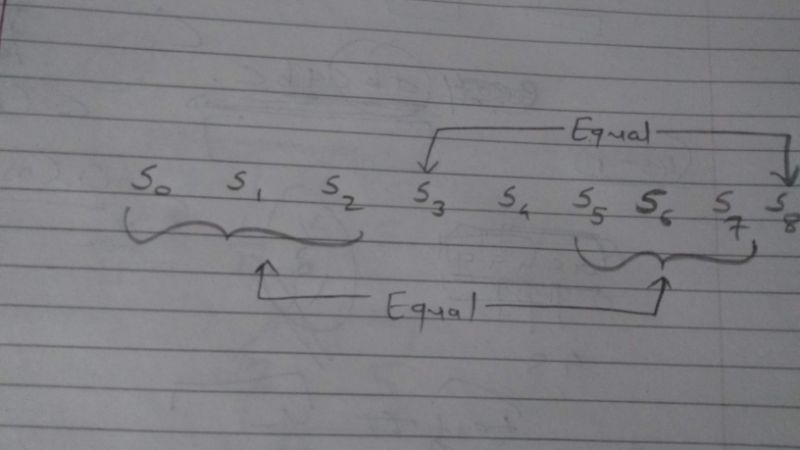 Equal
S₀ S₁ S₂ S₃ S₄ S₅ S₆ S₇ S₈
Equal